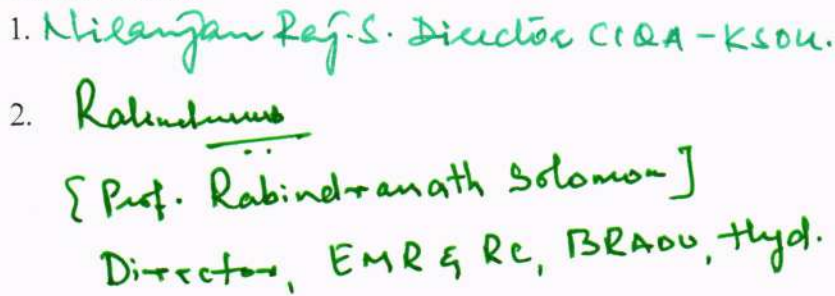 1. Nilanjan Raj.S. Director CIQA - KSOU.
2.
[Prof. Rabindranath Solomon]
Director, EMR & RC, BRAOU, Hyd.